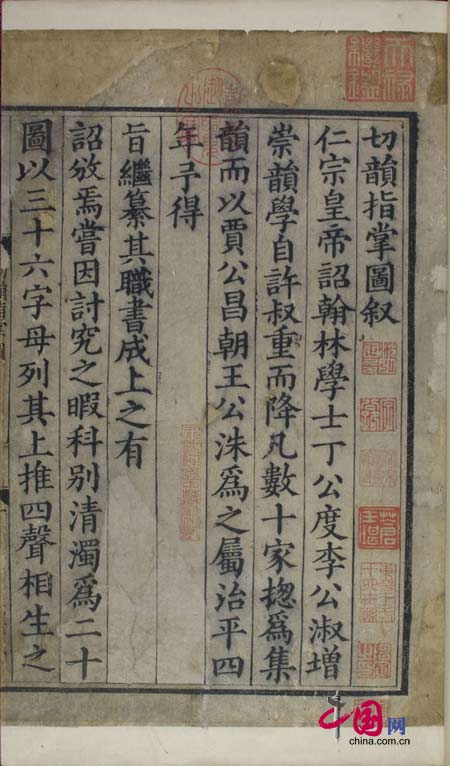 切韻指掌圖叙
仁宗皇帝詔翰林學士丁公度李公淑增
崇韻學自許叔重而降凡數十家揔爲集
韻而以賈公昌朝王公洙爲之屬治平四
年予得
旨繼纂其職書成上之有
詔攽焉嘗因討究之暇科别清濁爲二十
圖以三十六字母列其上推四聲相生之
中国网
china.com.cn